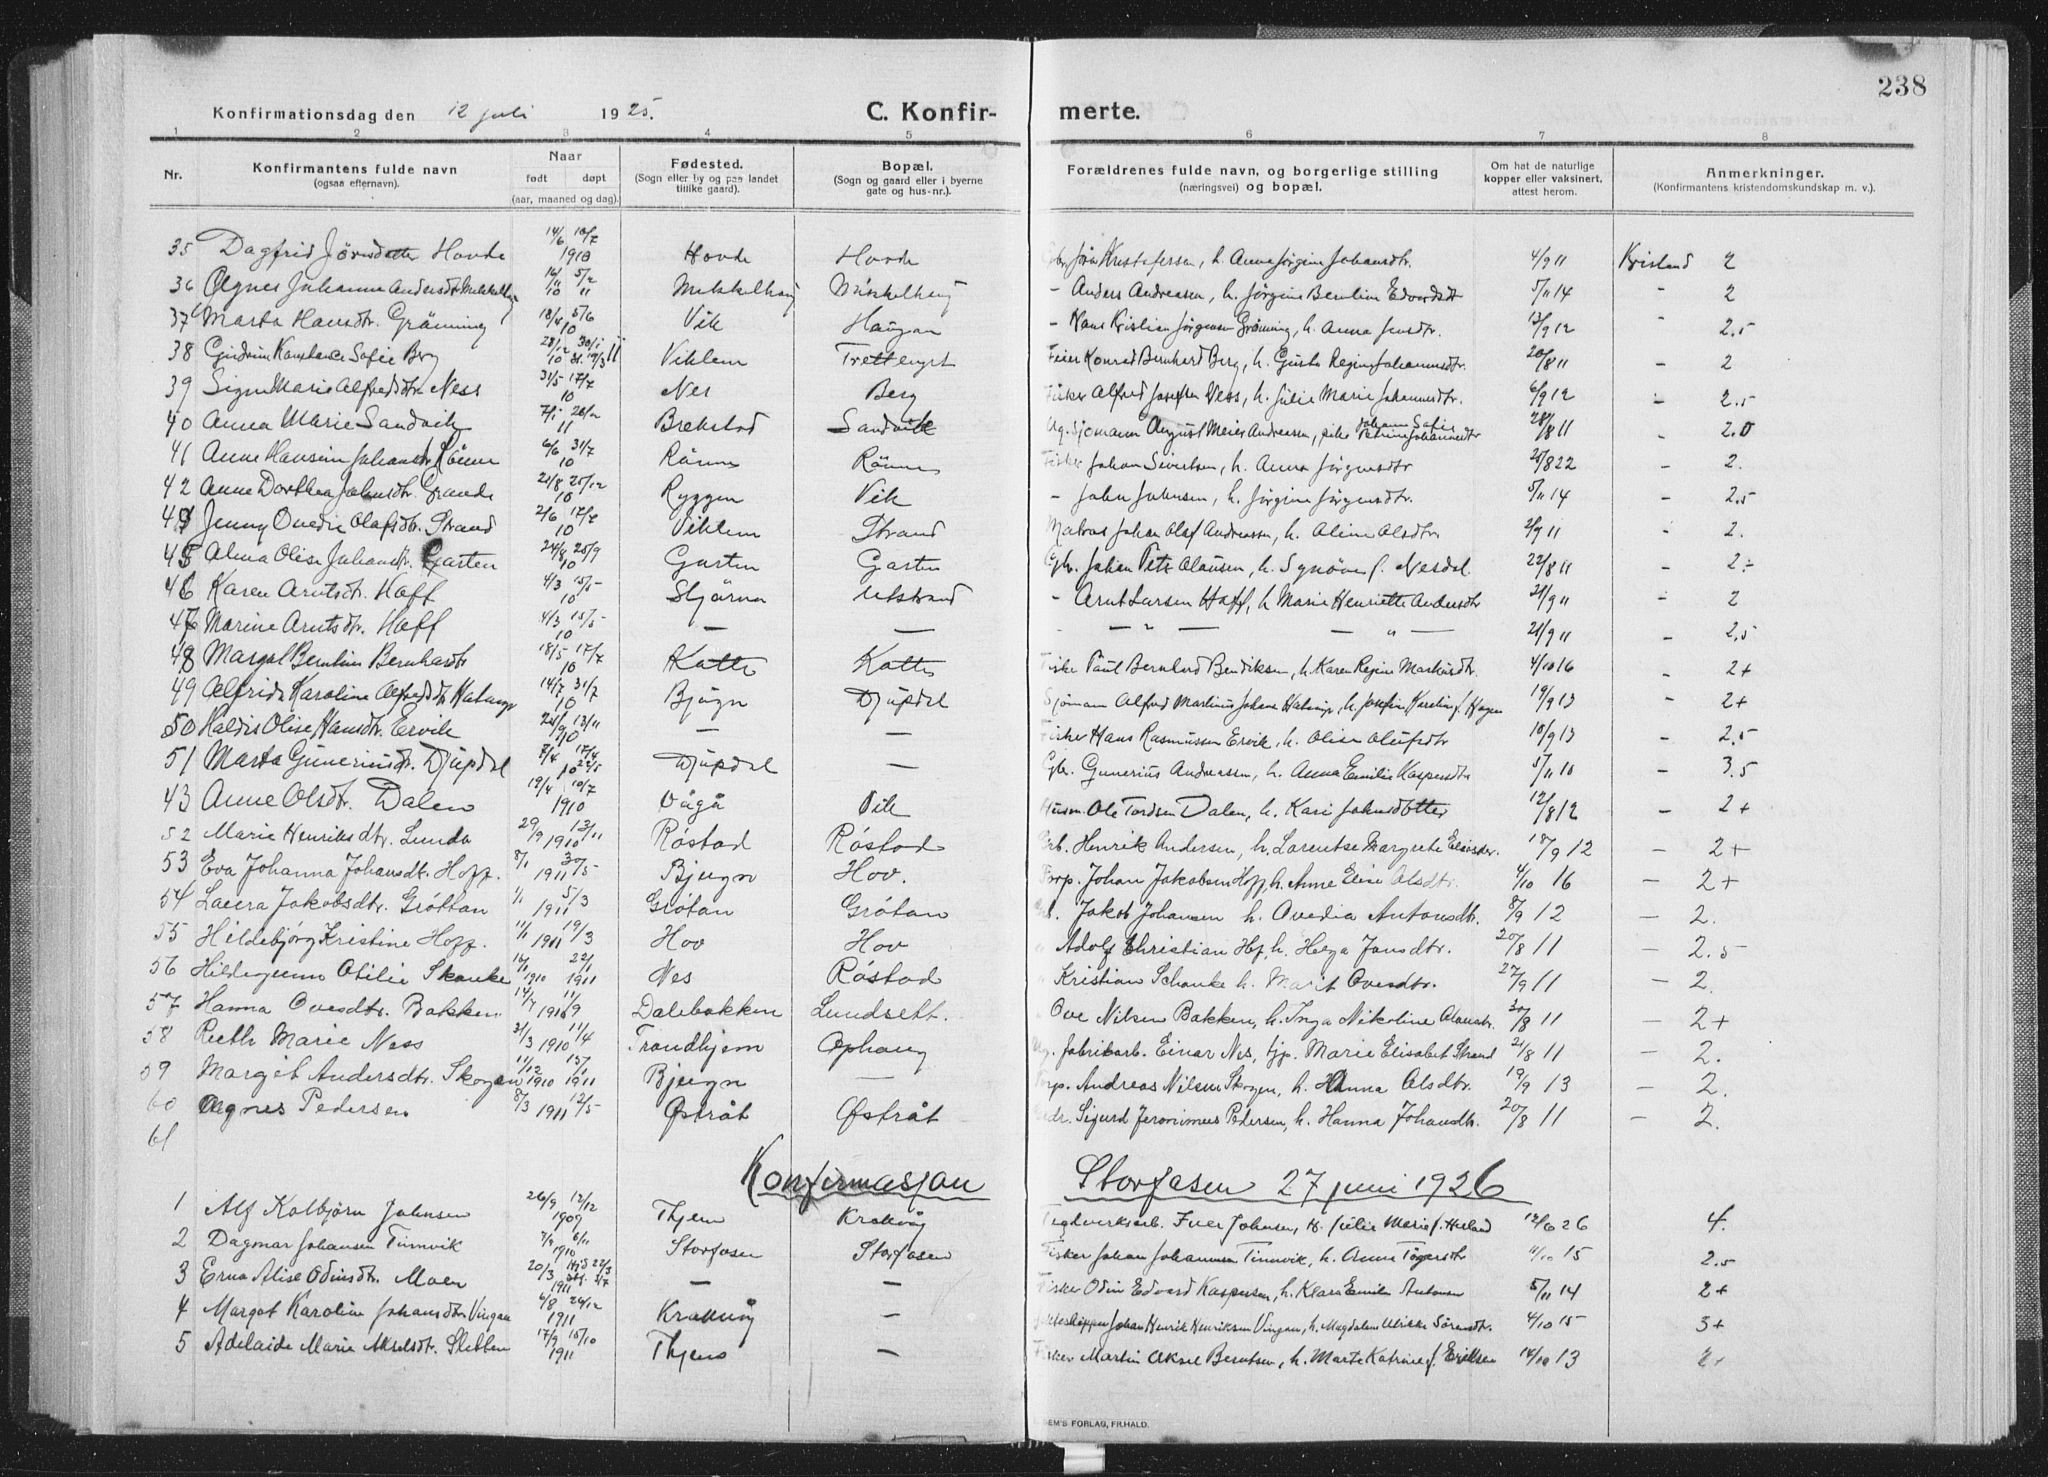 238
Konfirmationsdag den 12 juli 1925. C. Konfir- merte.
1 2 3 4 5 6 7 8
Nr. Konfirmantens fulde navn (ogsaa efternavn). Naar født døpt (aar, maaned og dag). Fødested. (Sogn eller by og paa landet tillike gaard). Bopæl. (Sogn og gaard eller i byerne gate og hus-nr.). Forældrenes fulde navn, og borgerlige stilling (næringsvei) og bopæl. Om hat de naturlige kopper eller vaksinert, attest herom. Anmerkninger. (Konfirmantens kristendomskundskap m. v.).
35 Dagfrid Jørnsdatter Hovde 14/6 10/7 1910 Hovde Hovde Jørn Kristofersen, h. Anna Jørgine Johansdtr. 4/9 11 Kristend 2
36 Agnes Johanne Andersdtr Mekkelhaug 16/11 10 5/2 11 Mekkelhaug Anders Andreasen, h. Jørgine Berntine Edvardsdtr 5/11 14 - 2
37 Marta Hansdtr. Grönning 18/4 5/6 10 Vik Haugan - Hans Kristian Jørgensen Grönning, h. Anna Jensdtr. 13/9 12 - 2.5
38 Gudrun Konstance Sofie Berg 28/12 10 Viklem Feier Konrad Bernhard Berg, h. Gusta Regine Johannesdtr. 20/8 11 - 2
39 Signe Marie Alfredsdtr. Ness 31/5 17/7 10 Nes Berg Fisker Alfred Josefsen Ness, h. Julie Marie Johannesdtr. 6/9 12 - 2.5
40 Anna Marie Sandvik 7/1 26/2 11 Brekstad Sandvik Ug. Sjømann August Meier Andreassen, pike Johanna Sofie Petrine Johannesdtr 28/8 11 - 2.0
41 Anne Hansine Johansdtr. Rönne 6/6 31/7 10 Rönne Rönne Fisker Johan Sivertsen, h. Anna Jørgensdtr 25/8 22 - 2.
42 Anne Dorthea Johnsdtr. Grande 21/8 25/12 10 Ryggen Vik - John Johnsen, h. Jørgine Jørgensdtr. 5/11 14 - 2.5
Jenny Ovedie Olafsdtr. Strand 2/6 17/7 10 Viklem Strand Matros Johan Olaf Andreassen, h. Aline Olsdtr 2/9 11 - 2.
45 Alma Olise Johansdtr. Garten 24/8 25/9 10 Garten Garten Gbr. Johan Peter Olausen, h. Synöve f. Nesdal 22/8 11 - 2÷
46 Karen Arntsdtr. Hoff 4/3 15/5 10 Stjørna Utstrand - Arnt Larsen Hoff, h. Marie Henriette Andersdtr 21/9 11 - 2
47 Marine Arntsdtr. Hoff 4/3 15/5 10 — — - — " — — " — 21/9 11 - 2.5
48 Margot Berntine Bernhardtr 18/5 17/7 10 Kotte Kotte Fisker Paul Bernhard Bendiksen, h. Karen Regine Markusdtr. 4/10 16 - 2+
49 Alfrida Karoline Alfredsdtr. 14/7 31/7 10 Bjugn Djupdal Sjømann Alfred Martinius Johans h. Josefine Karoline f. Hagen 19/9 13 - 2+
50 Haldis Olise Hansdtr. Ervik 21/9 13/11 10 — — Fisker Hans Rasmussen Ervik, h. Olise Olufsdtr 10/9 13 - 2.5
51 Marta Gunerinsdtr. Djupdal 7/4 17/4 10 Djupdal — Gbr. Gunerius Andreassen, h. Anna Emilie Kaspersdtr 5/11 10 - 3.5
43 Anne Olsdtr. Dalen 19/4 10/7 1910 Vågå Vik Husm. Ole Tordsen Dalen, h. Kari Johnsdotter 12/8 12 - 2+
52 Marie Henriksdtr. Lunda 29/9 13/11 1910 Róstad Róstad Gb. Henrik Andersen, h. Larentse Margrete 18/9 12 - 2+
53 Eva Johanna Johansdtr. Hoff. 8/1 30/5 1911 Bjugn Hov. Forp. Johan Jakobsen Hoff, h. Anne Elise Olsdtr. 4/10 16 - 2+
54 Laura Jakobsdtr. Gróttan 1/1 5/3 1911 Grótan Grótan Jakob Johansen h. Ovedia Antonsdtr. 8/9 12 - 2.
55 Hildebjörg Kristine Hoff. 11/1 19/3 1911 Hov Hov Adolf Christian Hof, h. Helga Jonsdtr. 20/8 11 - 2.5
56 Hildegunn Otilie Skanke 1910 22/1 1911 Nes Róstad Kristian Schanke h. Marit Ovesdtr. 27/9 11 - 2.
57 Hanna Ovesdtr. Bakken 14/7 11/9 1910 Dalebakken Lundsett. Ove Nilsen Bakken, h. Inga Nikoline 30/8 11 - 2+
58 Ruth Marie Ness 31/3 11/4 1910 Trondhjem Ophaug Ug. fabrikarb. Einar Nes, tjp. Marie Elisabet Strand 21/8 11 - 2.
59 Margit Andersdtr. Skogan 11/12 1910 15/1 1911 Bjugn — Forp. Andreas Nilsen Skogen, h. Hanna Olsdtr. 19/9 13 - 2.
60 Agnes Pedersen 8/3 12/5 1911 Østråt Østråt Sigurd Jeronimus Pedersen, h. Hanna Johansdtr. 20/8 11 - 2.
61
Konfirmasjon Storfosen 27 juni 1926
1 Alf Kolbjörn Johnsen 26/9 12/12 1909 Krakvåg Teglverksarb. Iver Johnsen, h. Julie Marie f. 12/6 26 4.
2 Dagmar Johansen Timvik 7/9 6/11 1910 Storfosen Storfosen Fisker Johan Johannesen Timvik, h. Anna 11/10 15 2.5
3 Erna Alise Odinsdtr. Moen 20/3 1911 — — Fisker Odin Edvard Kaspersen, h. Klara Emilie Antonsen 5/11 14 2+
4 Margot Karoline Johansdtr. Vingan 6/8 26/12 1911 Krakvåg — Johan Henrik Henriksen Vingan, h. Magdalena Ulrikke Sörensdtr. 4/10 15 3+
5 Adelaide Marie Akselsdtr. Sletten 17/9 15/10 1911 — Fisker Martin Aksel Berntsen, h. Marte Katrine f. Eriksen 14/10 13 2+
EM'S FORLAG, FR.HALD.